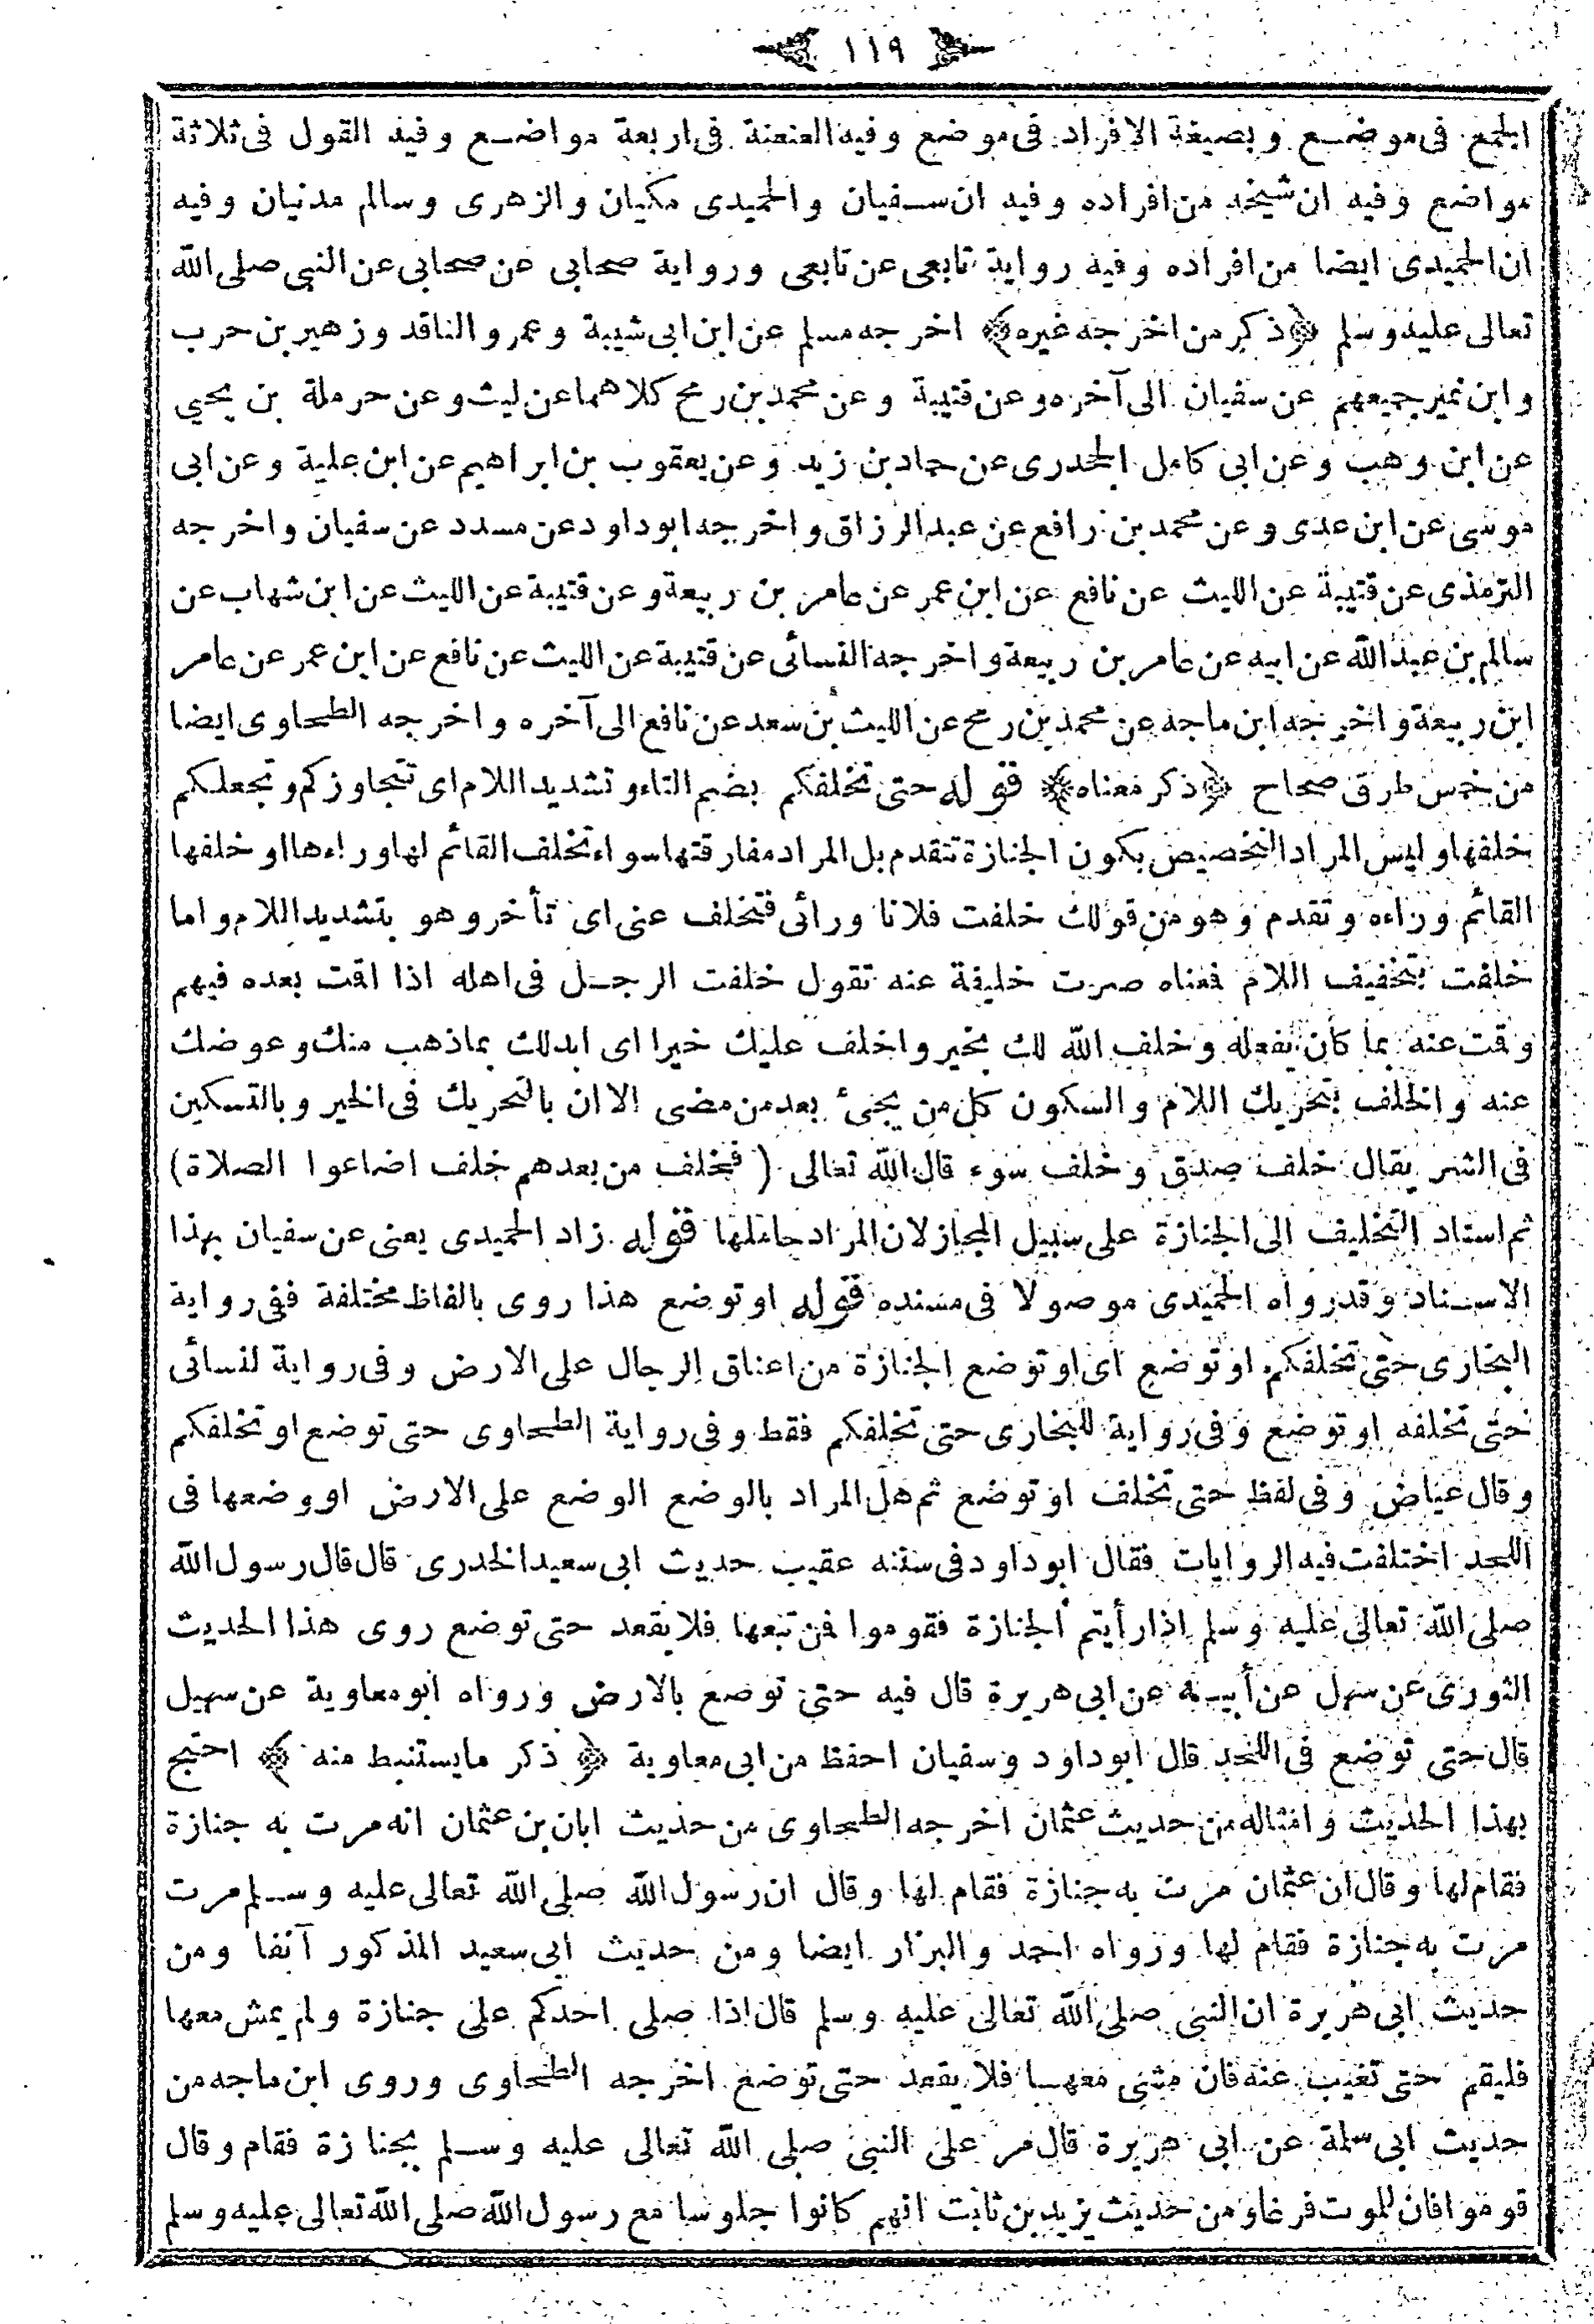 ١١٩
الجمع فى موضع وبصيغة الافراد فى موضع وفيه العنعنة فى اربعة مواضع وفيه القول فى ثلاثة
مواضع وفيه ان شيخه من افراده وفيه ان سفيان والحميدى مكيان والزهرى وسالم مدنيان وفيه
ان الحميدى ايضا من افراده وفيه رواية تابعى عن تابعى ورواية صحابى عن صحابى عن النبى صلى الله
تعالى عليه وسلم ﴿ذكر من اخرجه غيره﴾ اخرجه مسلم عن ابن ابى شيبة وعمرو الناقد وزهير بن حرب
وابن نمير جميعهم عن سفيان الى آخره وعن قتيبة وعن محمد بن رمح كلاهما عن ليث وعن حرملة بن يحيى
عن ابن وهب وعن ابى كامل الجحدرى عن حماد بن زيد وعن يعقوب بن ابراهيم عن ابن علية وعن ابى
موسى عن ابن عدى وعن محمد بن رافع عن عبد الرزاق واخرجه ابو داود عن مسدد عن سفيان واخرجه
الترمذى عن قتيبة عن الليث عن نافع عن ابن عمر عن عامر بن ربيعة وعن قتيبة عن الليث عن ابن شهاب عن
سالم بن عبد الله عن ابيه عن عامر بن ربيعة واخرجه النسائى عن قتيبة عن الليث عن نافع عن ابن عمر عن عامر
ابن ربيعة واخرجه ابن ماجه عن محمد بن رمح عن الليث بن سعد عن نافع الى آخره واخرجه الطحاوى ايضا
من خمس طرق صحاح ﴿ذكر معناه﴾ قوله حتى تخلفكم بضم التاء وتشديد اللام اى تتجاوزكم وتجعلكم
خلفها وليس المراد التخصيص بكون الجنازة تتقدم بل المراد مفارقتها سواء تخلف القائم لها وراءها او خلفها
القائم وراءه وتقدم وهو من قولك خلفت فلانا ورائى فتخلف عنى اى تأخر وهو بتشديد اللام واما
خلفت بتخفيف اللام فعناه صرت خليفة عنه تقول خلفت الرجل فى اهله اذا اقت بعده فيهم
وقت عنه بما كان يفعله وخلف الله لك بخير واخلف عليك خيرا اى ابدلك بماذهب منك وعوضك
عنه والخلف بتحريك اللام والسكون كل من يجئ بعد من مضى الا ان بالتحريك فى الخير وبالتسكين
فى الشر يقال خلف صدق وخلف سوء قال الله تعالى (فخلف من بعدهم خلف اضاعوا الصلاة)
ثم اسناد التخليف الى الجنازة على سبيل المجاز لان المراد حاملها قوله زاد الحميدى يعنى عن سفيان بهذا
الاسناد وقد رواه الحميدى موصولا فى مسنده قوله او توضع هذا روى بالفاظ مختلفة ففى رواية
البخارى حتى تخلفكم او توضع اى او توضع الجنازة من اعناق الرجال على الارض وفى رواية لنسائى
حتى تخلفه او توضع وفى رواية للبخارى حتى تخلفكم فقط وفى رواية الطحاوى حتى توضع او تخلفكم
وقال عياض وفى لفظ حتى تخلف او توضع ثم هل المراد بالوضع الوضع على الارض او وضعها فى
اللحد اختلفت فيه الروايات فقال ابو داود فى سننه عقيب حديث ابى سعيد الخدرى قال قال رسول الله
صلى الله تعالى عليه وسلم اذا رأيتم الجنازة فقوموا فمن تبعها فلا يقعد حتى توضع روى هذا الحديث
الثورى عن سهل عن أبيه عن ابى هريرة قال فيه حتى توضع بالارض ورواه ابو معاوية عن سهيل
قال حتى توضع فى اللحد قال ابو داود وسفيان احفظ من ابى معاوية ﴿ ذكر ما يستنبط منه ﴾ احتج
بهذا الحديث وامثاله من حديث عثمان اخرجه الطحاوى من حديث ابان بن عثمان انه مرت به جنازة
فقام لها وقال ان عثمان مرت به جنازة فقام لها وقال ان رسول الله صلى الله تعالى عليه وسلم مرت
مرت به جنازة فقام لها ورواه احمد والبزار ايضا ومن حديث ابى سعيد المذكور آنفا ومن
حديث ابى هريرة ان النبى صلى الله تعالى عليه وسلم قال اذا صلى احدكم على جنازة ولم يمش معها
فليقم حتى تغيب عنه فان مشى معها فلا يقعد حتى توضع اخرجه الطحاوى وروى ابن ماجه من
حديث ابى سلمة عن ابى هريرة قال مر على النبى صلى الله تعالى عليه وسلم بجنازة فقام وقال
قوموا فان للموت فرعا ومن حديث يزيد بن ثابت انهم كانوا جلوسا مع رسول الله صلى الله تعالى عليه وسلم